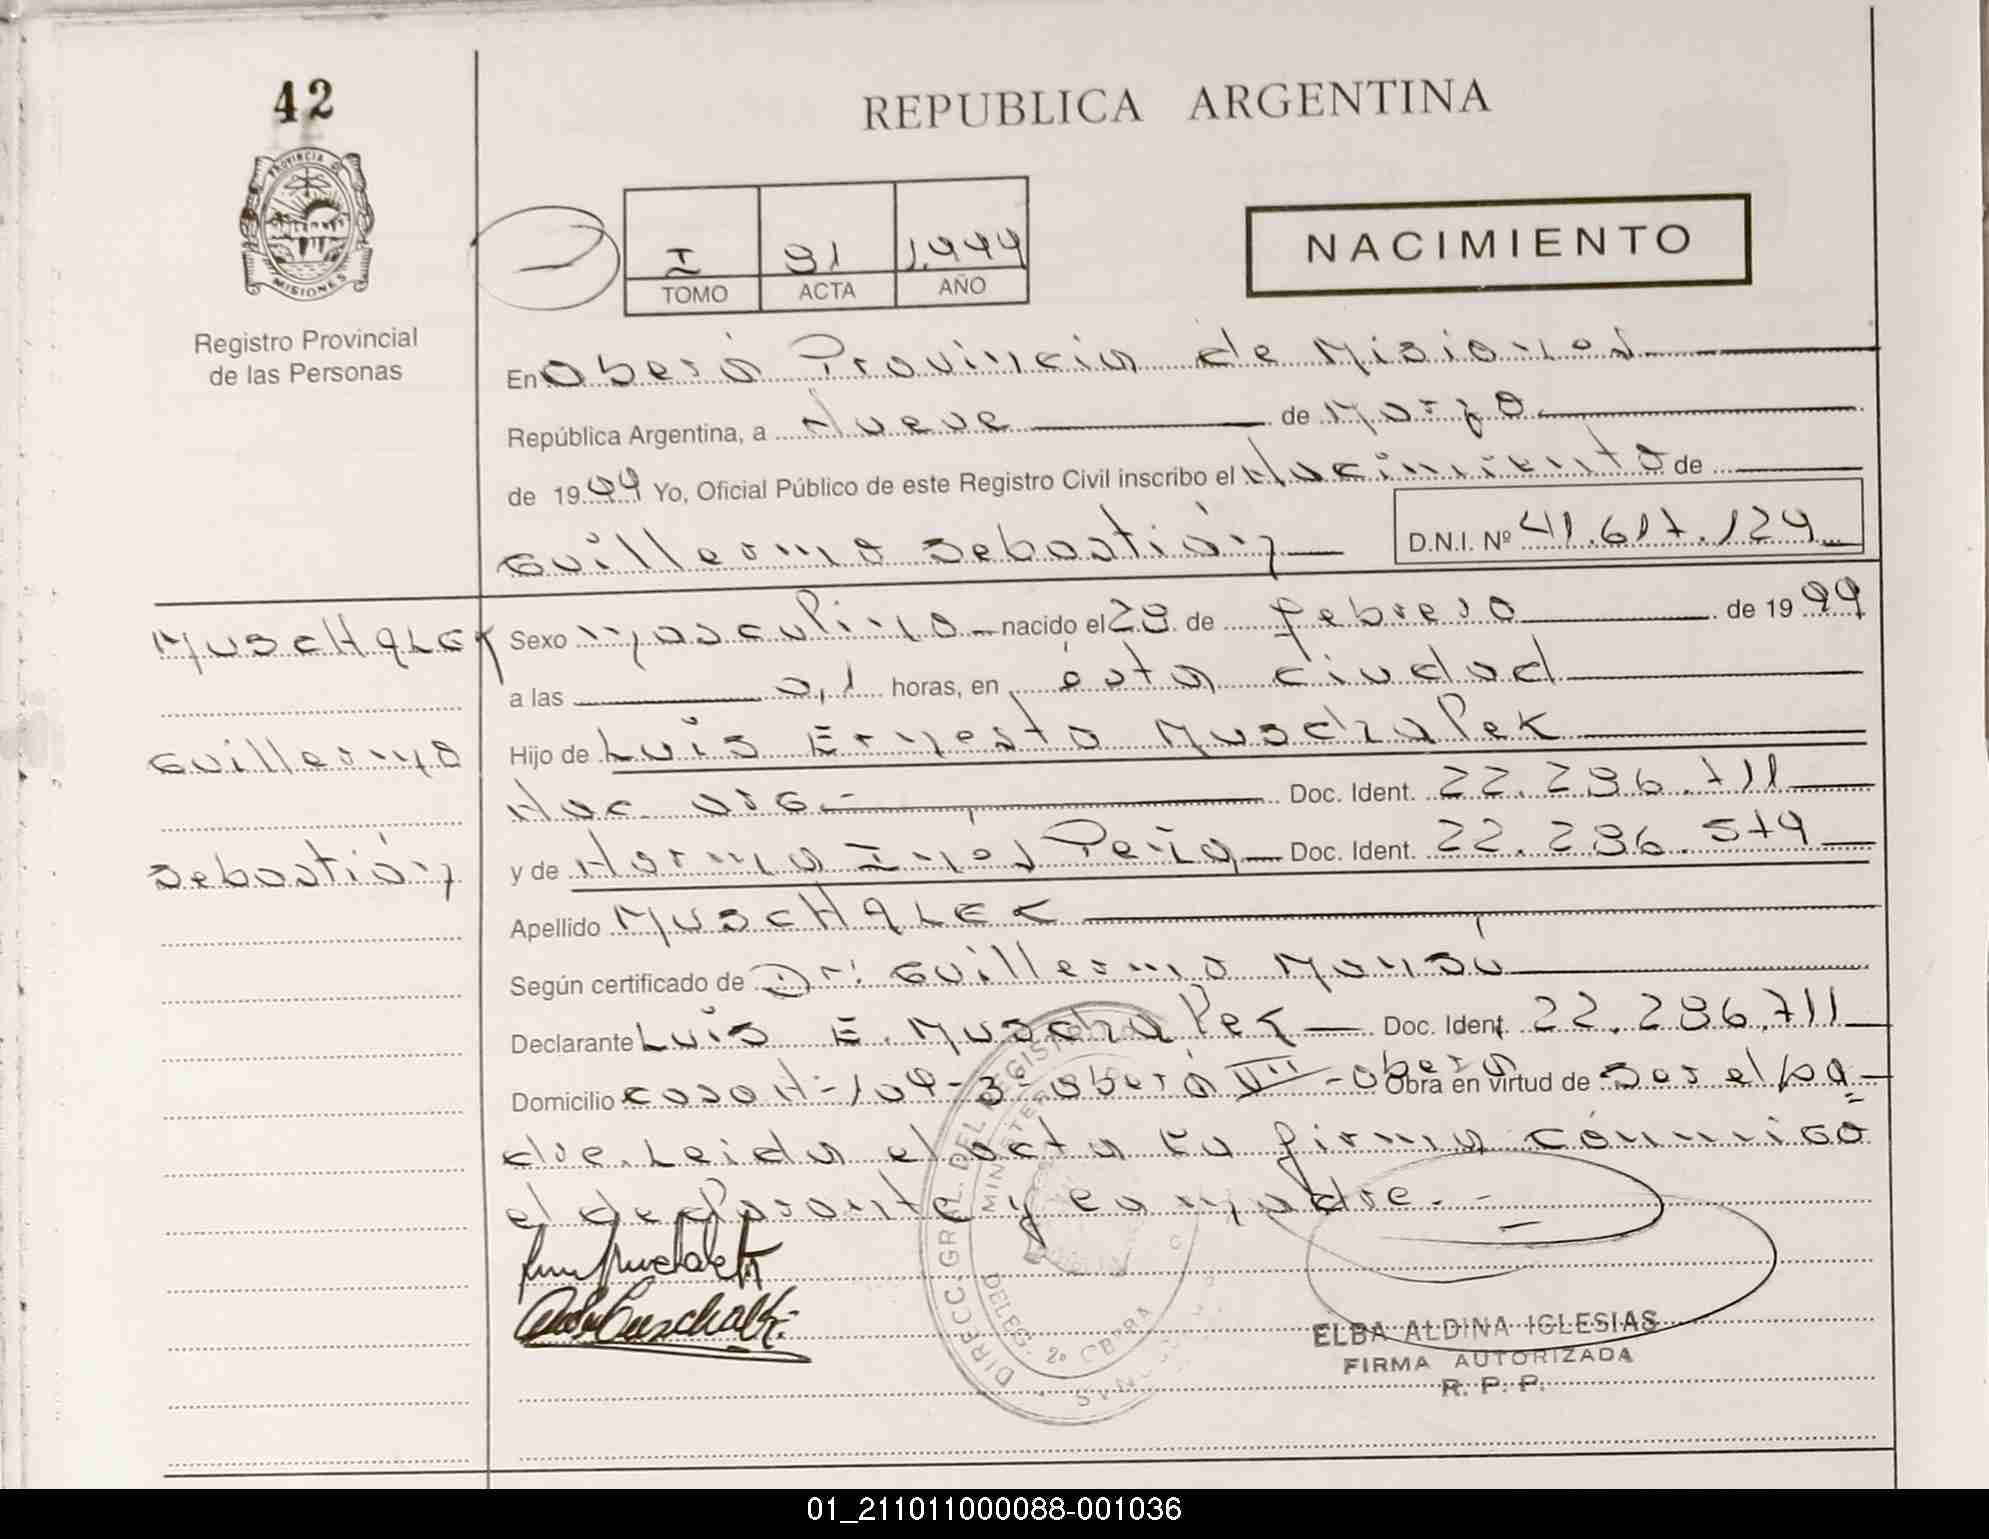 42
REPUBLICA ARGENTINA
PROVINCIA DE
MISIONES
Registro Provincial
de las Personas
I 91 1.999
TOMO ACTA AÑO
NACIMIENTO
En Oberá Provincia de Misiones
República Argentina, a Nueve de Marzo
de 1999 Yo, Oficial Público de este Registro Civil inscribo el Nacimiento de
Guillermo Sebastián D.N.I. Nº 41.617.124
MUSCHALEK
Guillermo
Sebastián
Sexo masculino nacido el 28 de febrero de 1999
a las 0,1 horas, en ésta ciudad
Hijo de Luis Ernesto Muschalek
Nac. arg.- Doc. Ident. 22.286.711
y de Norma Inés Peña Doc. Ident. 22.286.579
Apellido MUSCHALEK
Según certificado de Dr: Guillermo
Declarante Luis E. Muschalek Doc. Ident. 22.286.711
Domicilio casa Nº 109-3º-Oberá VII-Oberá Obra en virtud de ser el pa=
dre. Leida el acta la firma conmigo
el declarante y la madre.-
DIRECC. GRAL. DEL REGISTRO
DELEG. 2º OBERA
ELBA ALDINA IGLESIAS
FIRMA AUTORIZADA
R. P. P.
01_211011000088-001036